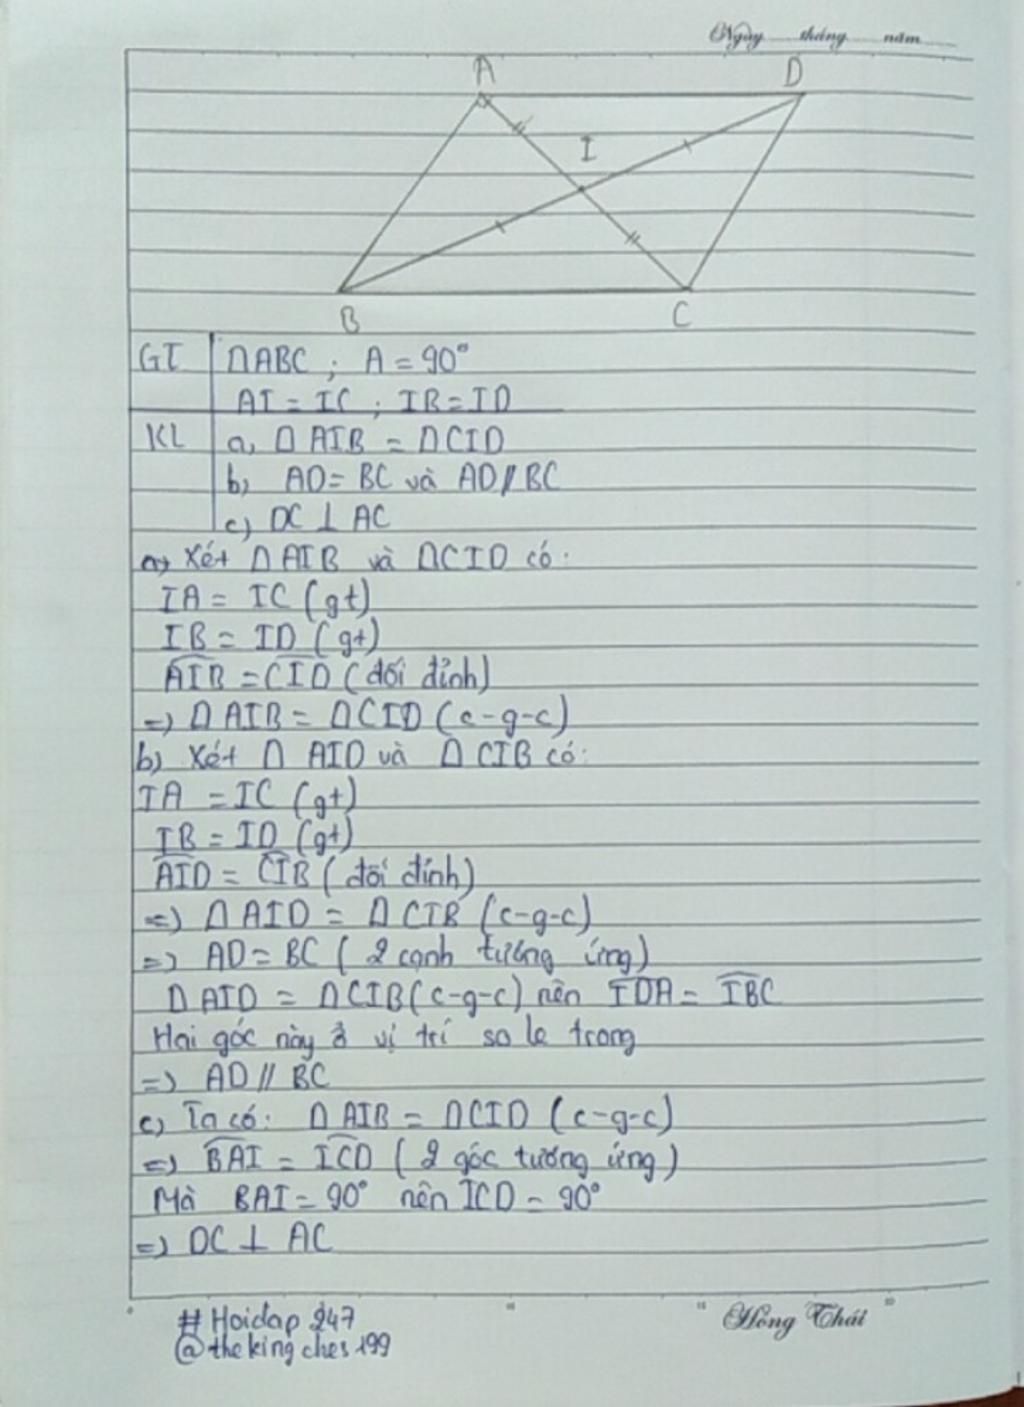 Ngày tháng năm
A D
I
B C
GT ΔABC ; A = 90°
AI = IC ; IB = ID
KL a, Δ AIB = ΔCID
b) AD = BC và AD // BC
c) DC ⊥ AC
a) Xét Δ AIB và ΔCID có:
IA = IC (gt)
IB = ID (gt)
AIB̂ = CID̂ (đối đỉnh)
=) Δ AIB = ΔCID (c-g-c)
b) Xét Δ AID và Δ CIB có:
IA = IC (gt)
IB = ID (gt)
AID̂ = CIB̂ (đối đỉnh)
=) Δ AID = Δ CIB (c-g-c)
=) AD = BC ( 2 cạnh tương ứng)
Δ AID = ΔCIB (c-g-c) nên IDÂ = IBĈ
Hai góc này ở vị trí so le trong
=) AD // BC
c) Ta có: Δ AIB = ΔCID (c-g-c)
=) BAÎ = ICD̂ ( 2 góc tương ứng)
Mà BAI = 90° nên ICD = 90°
=) DC ⊥ AC
# Hoidap 247
@thekingches199
Hồng Thái